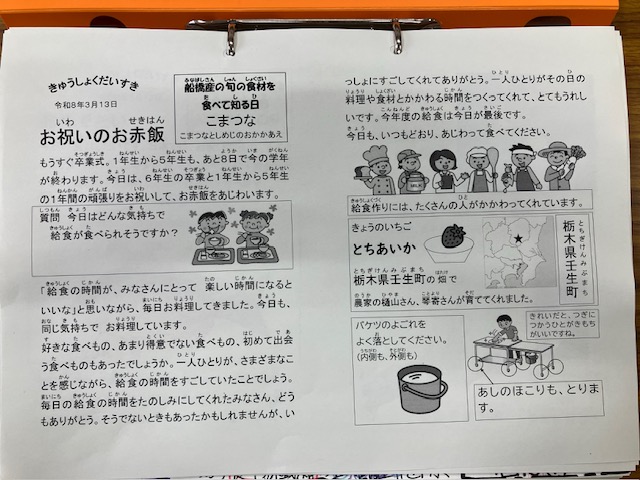 きゅうしょくだいすき
令和8年3月13日
お祝いのお赤飯
船橋産の旬の食材を
食べて知る日
こまつな
こまつなとしめじのおかかあえ
もうすぐ卒業式。1年生から5年生も、あと8日で今の学年
が終わります。今日は、6年生の卒業と1年生から5年生
の1年間の頑張りをお祝いして、お赤飯をあじわいます。
質問 今日はどんな気持ちで
給食が食べられそうですか？
「給食の時間が、みなさんにとって 楽しい時間になると
いいな」と思いながら、毎日お料理してきました。今日も、
同じ気持ちで お料理しています。
好きな食べもの、あまり得意でない食べもの、初めて出会
う食べものもあったでしょうか。一人ひとりが、さまざまなこ
とを感じながら、給食の時間をすごしていたことでしょう。
毎日の給食の時間をたのしみにしてくれたみなさん、どう
もありがとう。そうでないときもあったかもしれませんが、い
っしょにすごしてくれてありがとう。一人ひとりがその日の
料理や食材とかかわる時間をつくってくれて、とてもうれし
いです。今年度の給食は今日が最後です。
今日も、いつもどおり、あじわって食べてください。
給食作りには、たくさんの人がかかわってくれています。
きょうのいちご
とちあいか
栃木県壬生町の畑で
農家の樋山さん、琴寄さんが育ててくれました。
栃木県壬生町
バケツのよごれを
よく落としてください。
(内側も、外側も)
きれいだと、つぎに
つかうひとがきもち
がいいですね。
あしのほこりも、とりま
す。